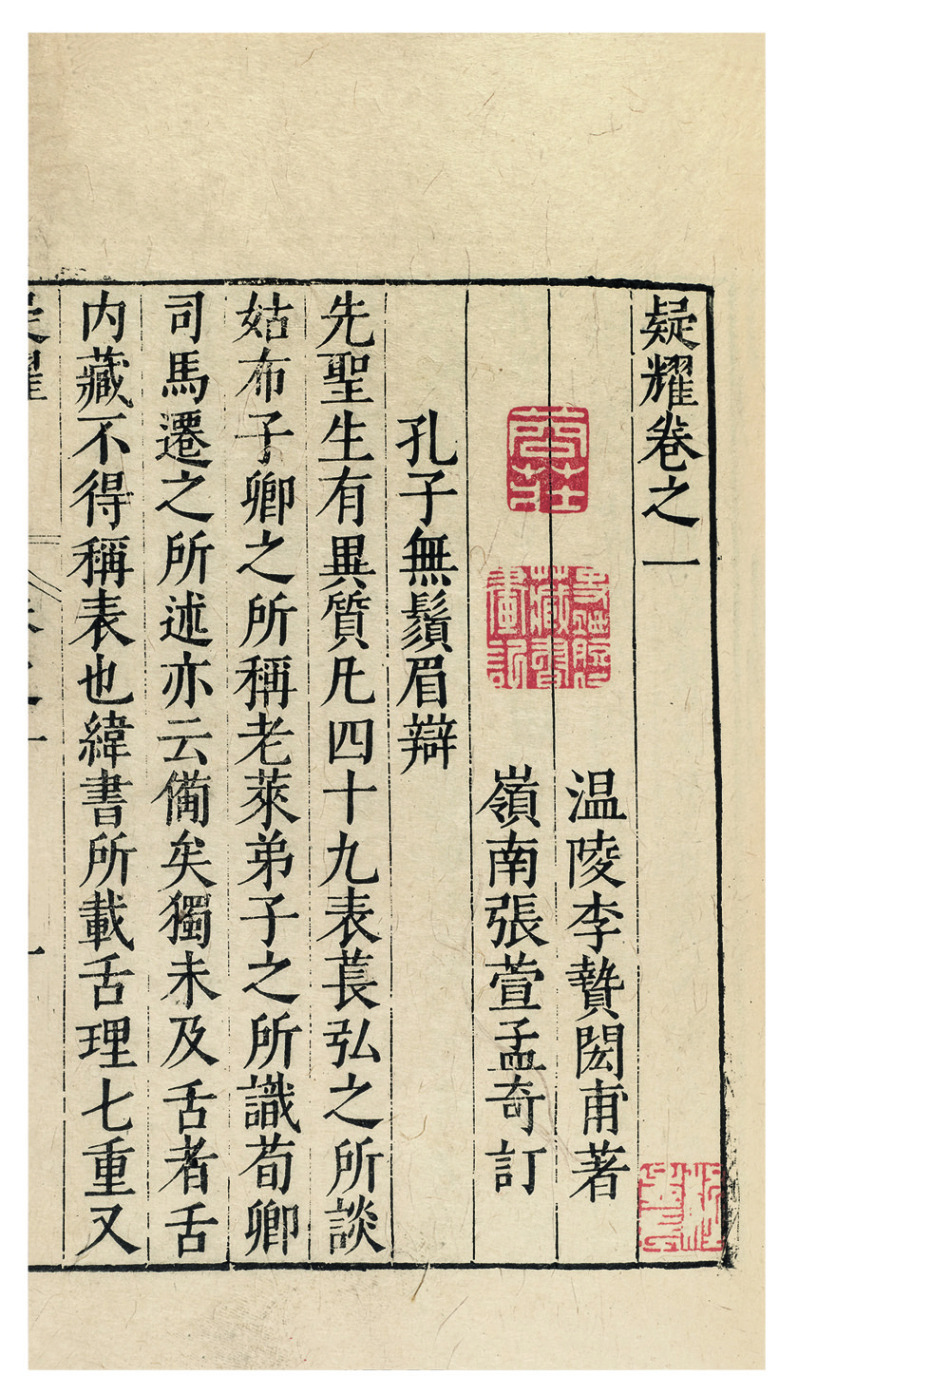 疑耀卷之一
温陵李贄閎甫著
嶺南張萱孟奇訂
孔子無鬚眉辯
先聖生有異質凡四十九表萇弘之所談
姑布子卿之所稱老萊弟子之所識荀卿
司馬遷之所述亦云備矣獨未及舌者舌
内藏不得稱表也緯書所載舌理七重又